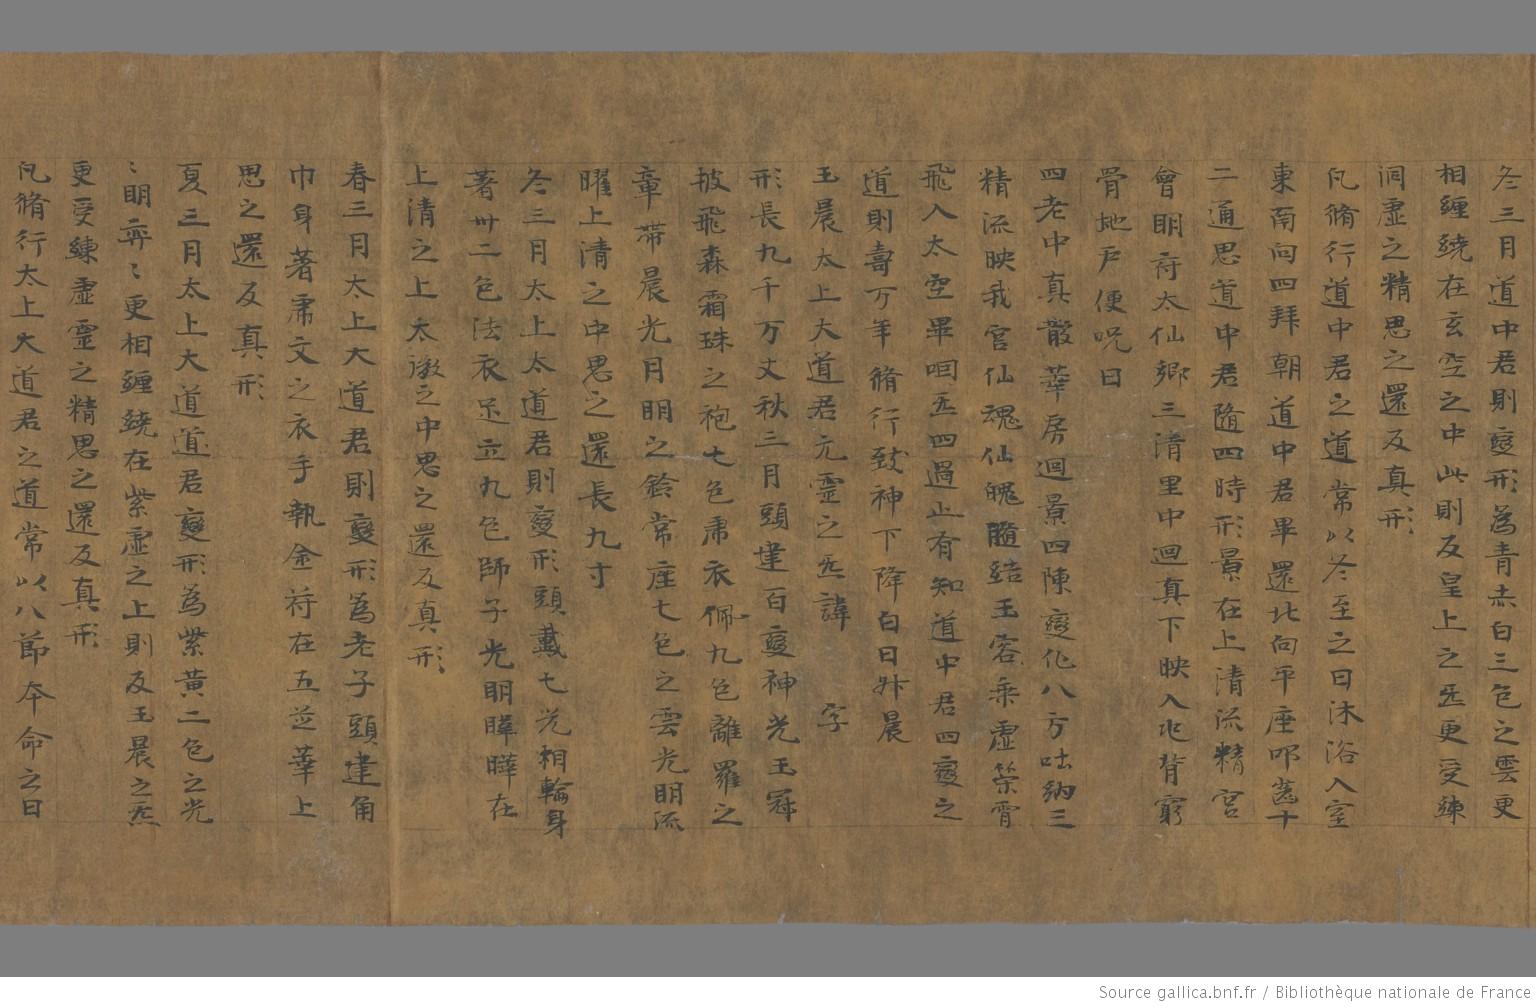 冬三月道中君則變形為青赤白三色之雲更
相纏繞在玄空之中此則反皇上之炁更受練
洞虛之精思之還反真形
凡脩行道中君之道常以冬至之日沐浴入室
東南向四拜朝道中君畢還北向平座叩齒十
二通思道中君隨四時形景在上清流精宮
會明府太仙鄉三清里中迴真下映入北背窮
骨地戶便呪曰
四老中真散華房迴景四陳變化八方吐納三
精流映我宮仙魂仙魄髓結玉容乘虛策霄
飛入太空畢咽炁四過止有知道中君四變之
道則壽万年脩行致神下降白日升晨
玉晨太上大道君元靈之炁諱 字
形長九千万丈秋三月頭建百變神光玉冠
披飛森霜珠之袍七色肅衣佩九色離羅之
章帶晨光月明之鈴常座七色之雲光明流
曜上清之中思之還長九寸
冬三月太上太道君則變形頭戴七光相輪身
著卅二色法衣足立九色師子光明暐曄在
上清之上太激之中思之還反真形
春三月太上大道君則變形為老子頭建角
巾身著肅文之衣手執金符在五並華上
思之還反真形
夏三月太上大道道君變形為紫黃二色之光
〻明弈〻更相纏繞在紫虛之上則反玉晨之炁
更受練虛靈之精思之還反真形
凡脩行太上大道君之道常以八節本命之日
Source gallica.bnf.fr / Bibliothèque nationale de France